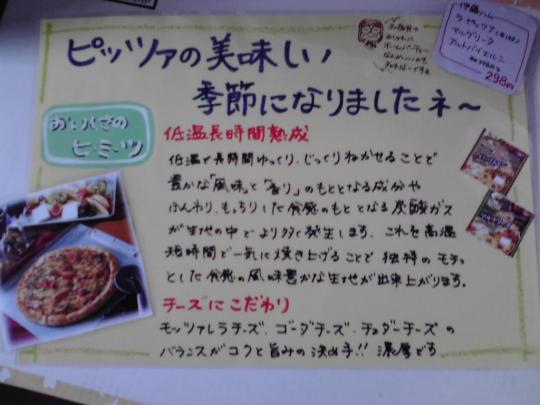 ピッツァの美味しい
季節になりましたネ～
伊藤ハム
ラ・ピッツァ
マルゲリータ
アルトバイエルン
298円
おいしさの
ヒ・ミ・ツ
低温長時間熟成
低温で長時間ゆっくり、じっくりねかせることで
豊かな「風味」と「香り」のもととなる成分や
ふんわり、もっちりした食感のもととなる炭酸ガス
が生地の中でより多く発生します。これを高温
短時間で一気に焼き上げることで独特のモチッ
とした食感の風味豊かな生地が出来上がります。
チーズにこだわり
モッツァレラチーズ、ゴーダチーズ、チェダーチーズの
バランスがコクと旨みの決め手!!濃厚です